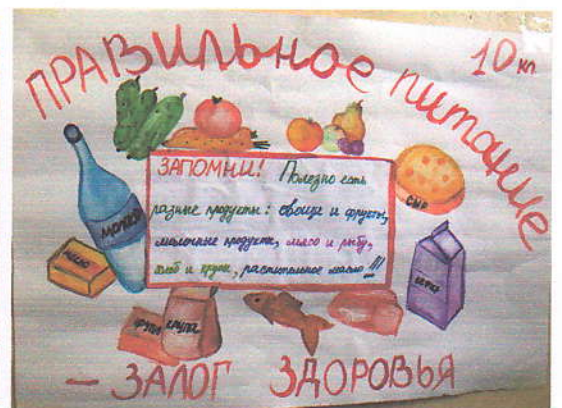 ПРАВИЛЬНОЕ питание
10 кл
ЗАПОМНИ! Полезно есть
разные продукты: овощи и фрукты,
молочные продукты, мясо и рыбу,
хлеб и крупы, растительное масло!!!
МОЛОКО
СЫР
МАСЛО
КЕФИР
КРУПА
– ЗАЛОГ ЗДОРОВЬЯ